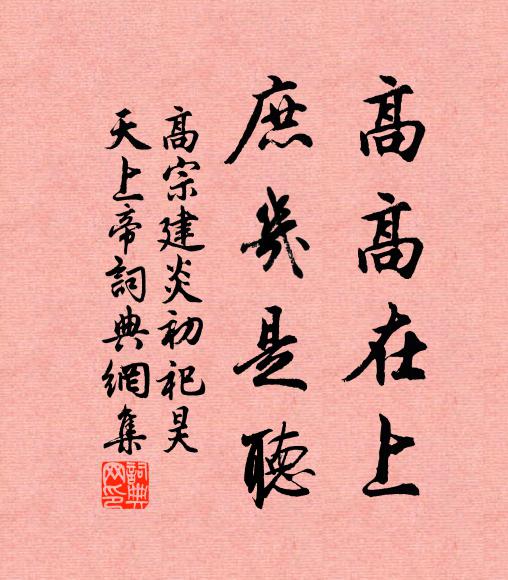 高高在上
庶幾是聽
高宗建炎初祀昊
天上帝詞典網集
詞典
网印